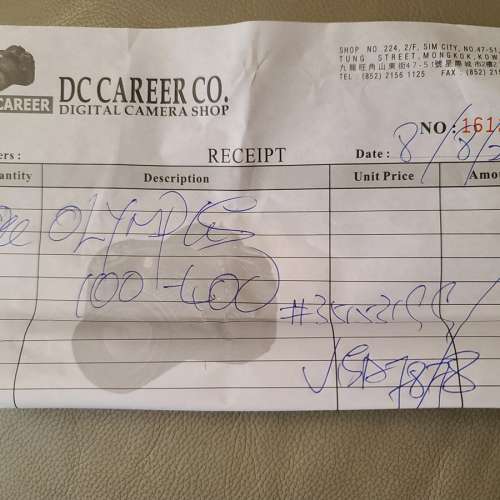 SHOP NO. 224, 2/F, SIM CITY, NO.47-51,
TUNG STREET, MONGKOK, KOW
九龍旺角山東街47-51號星際城市2樓2
TEL : (852) 2156 1125 FAX : (852) 21
CAREER
DC CAREER CO.
DIGITAL CAMERA SHOP
NO : 161
ers :
RECEIPT
Date : 8/8/
antity Description Unit Price Amo
OLYMPUS
100-400